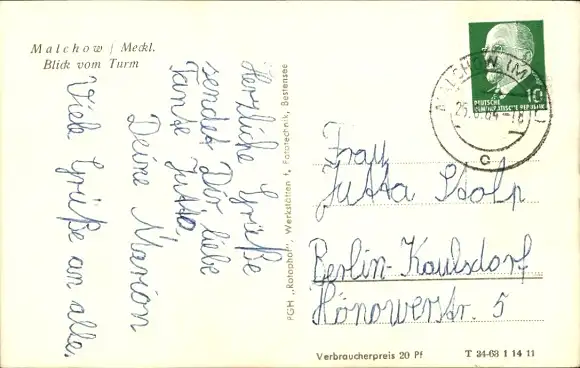 Malchow / Meckl.
Blick vom Turm
Herzliche Grüße
sendet Dir liebe
Tante Jutta,
Deine Marion
Viele Grüße an alle.
PGH „Rotophot", Werkstätten f. Fototechnik, Bestensee
10
DEUTSCHE
DEMOKRATISCHE REPUBLIK
MALCHOW (MECKL
25.6.64-18
c
Frau
Jutta Stolp
Berlin-Kaulsdorf
Hönowerstr. 5
Verbraucherpreis 20 Pf
T 34-63 1 14 11